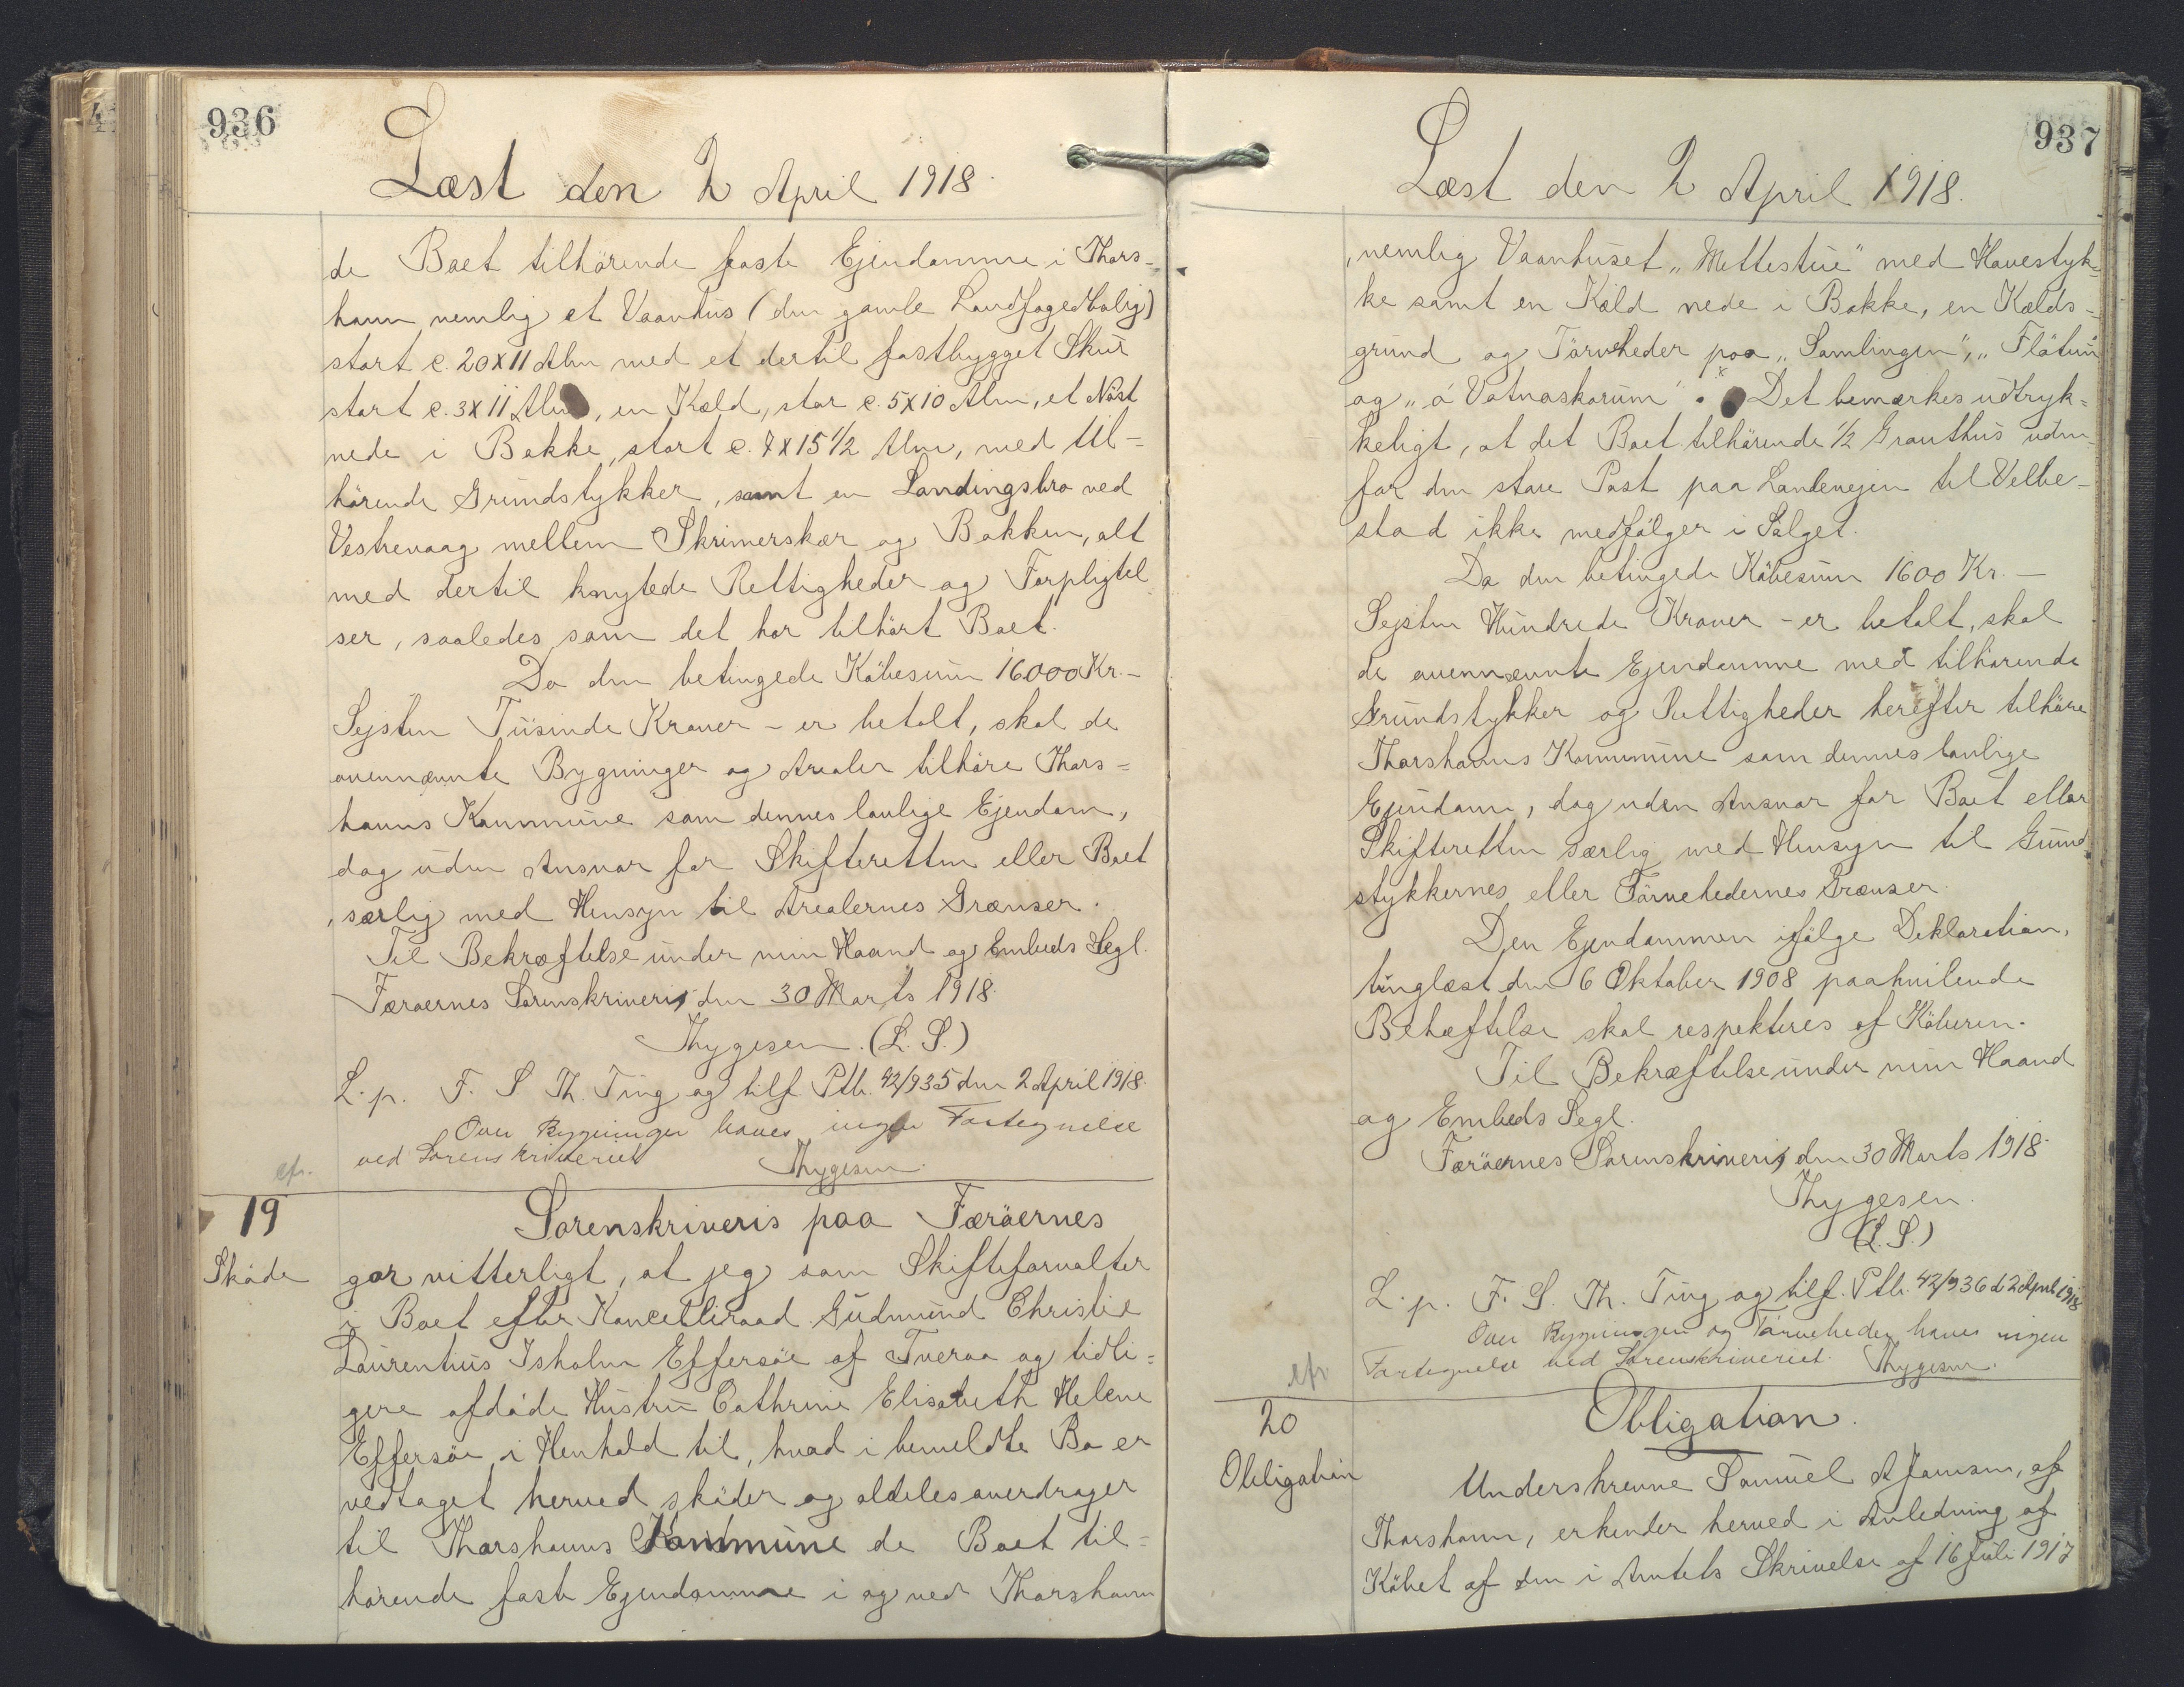 936
Læst den 2 April 1918.
de Boet tilhörende faste Ejendomme i Thors-
havn, nemlig et Vaanhus (den gamle Landfogedbolig)
stort c. 20 x 11 Alen med et dertil fastbygget Skur
stort c. 3 x 11 Alen, en Kæld, stor c. 5 x 10 Alen, et Nöst
nede i Bakke, stort c. 7 x 15 1/2 Alen, med til-
hörende Grundstykker, samt en Landingsbro ved
Vestrevaag mellem Skrimerskær og Bakken, alt
med dertil knytede Rettigheder og Forpligtel
ser, saaledes som det har tilhört Boet.
Da den betingede Köbesum 16000 Kr. -
Sejsten Tusinde Kroner - er betalt, skal de
ovennævnte Bygninger og Arealer tilhöre Thors=
havns Kommune som dennes lovlige Ejendom,
dog uden Ansvar for Skifteretten eller Boet
, særlig med Hensyn til Arealernes Grænser.
Til Bekræftelse under min Haand og Embeds Segl.
Færoernes Sorenskriveri, den 30 Marts 1918.
Thygesen. (L. S.)
L. p. F. S Th. Ting og tilf Ptb. 42/935 den 2 April 1918.
Over Bygninger haves ingen Fortegnelse
ved Sorenskriveriet
Thygesen.
cfr.
19
Sorenskriveris paa Færöernes
Sköde
gör vitterligt, at jeg som Skifteforvalter
i Boet efter Kancelliraad Gudmund Christie
Laurentius Isholm Effersöe af Tveraa og tidli=
gere afdöde Hustru Cathrine Elisabeth Helene
Effersöe, i Henhold til, hvad i bemeldte Bo er
vedtaget herved sköder og aldeles overdrager
til Thorshavns Kommune de Boet til=
hörende faste Ejendomme i og ved Thorshavn
937
Læst den 2 April 1918.
, nemlig Vaanhuset "Mettestue" med Havestyk=
ke samt en Kæld nede i Bakke, en Kælds=
grund og Törveheder paa "Samlingen", "Flötum"
og "á Vatnaskorum". Det bemærkes udtryk=
keligt, at det Boet tilhörende 1/2 Grauthus uden-
for den store Port paa Landevejen til Velbe-
stad ikke medfölger i Salget.
Da den betingede Köbesum 1600 Kr. -
Sejsten Hundrede Kroner - er betalt, skal
de ovennævnte Ejendomme med tilhörende
Grundstykker og Rettigheder herefter tilhöre
Thorshavns Kommune som dennes lovlige
Ejendom, dog uden Ansvar for Boet eller
Skifteretten særlig med Hensyn til Grund
stykkernes eller Törvehedernes Grænser.
Den Ejendommen ifölge Deklaration,
tinglæst den 6 Oktober 1908 paahvilende
Behæftelse skal respekteres af Köberen.
Til Bekræftelse under min Haand
og Embeds Segl.
Færöernes Sorenskriveri, den 30 Marts 1918.
Thygesen.
(L. S.)
L. p. F. S. Th. Ting og tilf. Ptb. 42/936 d 2 April 1918
Over Bygningen og Törveheder haves ingen
Fortegnelse ved Sorenskriveriet. Thygesen.
cfr
20
Obligation.
Obligation
Underskrevne Samuel A Jensen, af
Thorshavn, erkender herved i Anledning af
Köbet af den i Amtets Skrivelse af 16 Juli 1917